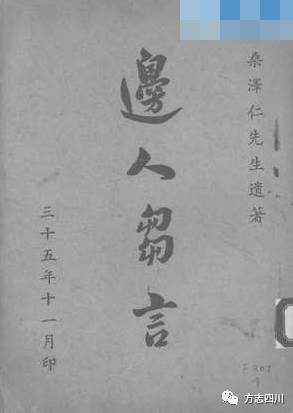 桑澤仁先生遺著
邊人芻言
三十五年十一月印
F 309
方志四川